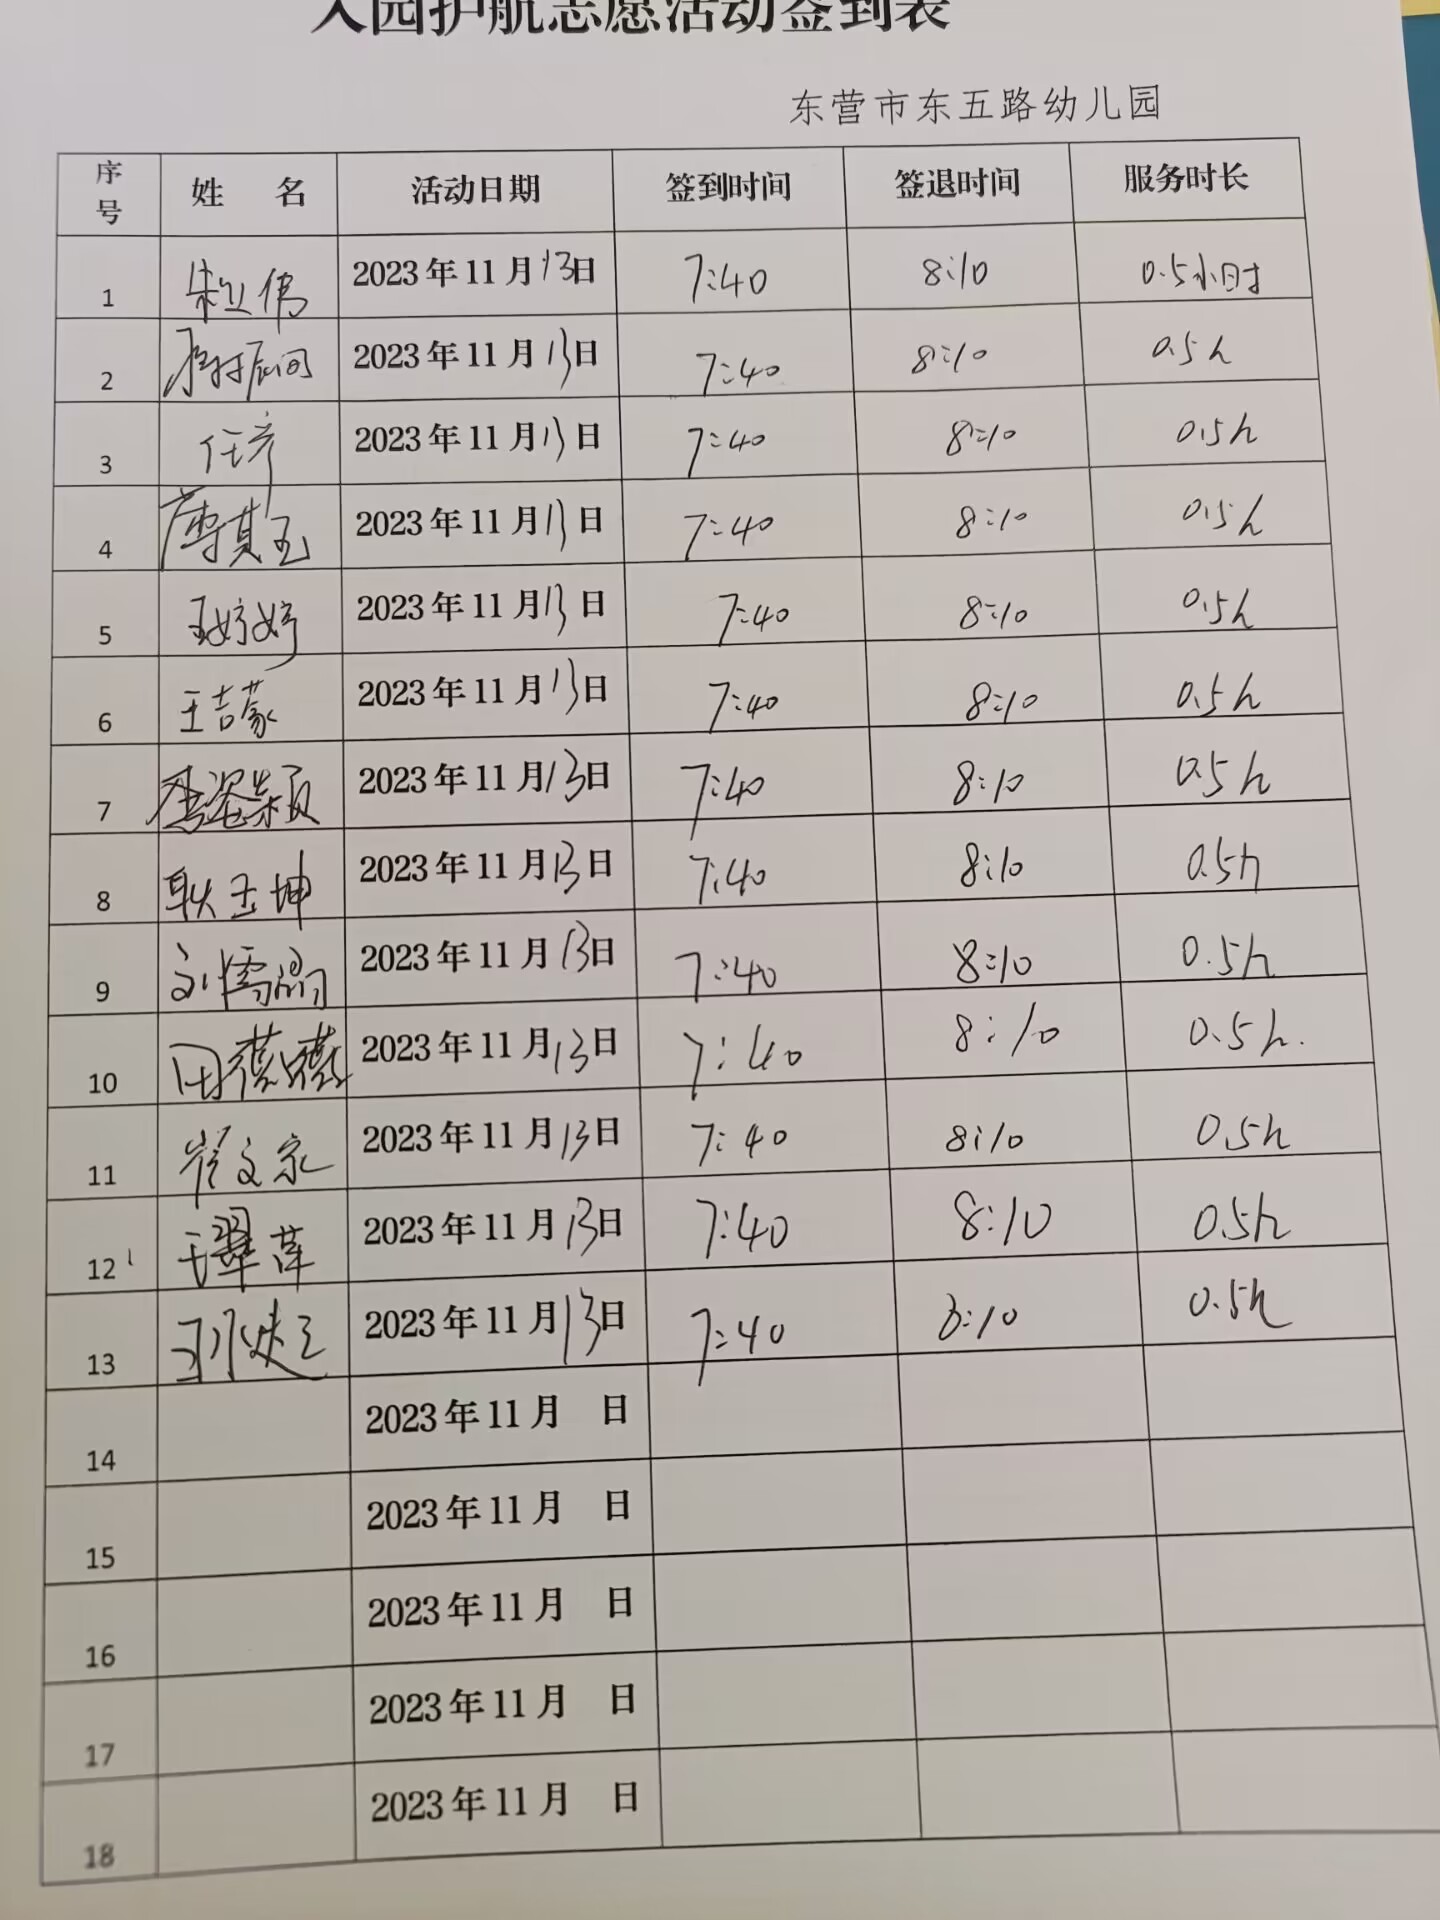 入园护航志愿活动签到表
东营市东五路幼儿园
序号 姓 名 活动日期 签到时间 签退时间 服务时长
1 2023年11月13日 7:40 8:10 0.5小时
2 2023年11月13日 7:40 8:10 0.5h
3 任彦 2023年11月13日 7:40 8:10 0.5h
4 2023年11月13日 7:40 8:10 0.5h
5 王婷婷 2023年11月13日 7:40 8:10 0.5h
6 王吉蒙 2023年11月13日 7:40 8:10 0.5h
7 2023年11月13日 7:40 8:10 0.5h
8 耿玉坤 2023年11月13日 7:40 8:10 0.5h
9 2023年11月13日 7:40 8:10 0.5h
10 2023年11月13日 7:40 8:10 0.5h.
11 崔文家 2023年11月13日 7:40 8:10 0.5h
12 2023年11月13日 7:40 8:10 0.5h
13 2023年11月13日 7:40 8:10 0.5h
14 2023年11月 日
15 2023年11月 日
16 2023年11月 日
17 2023年11月 日
18 2023年11月 日